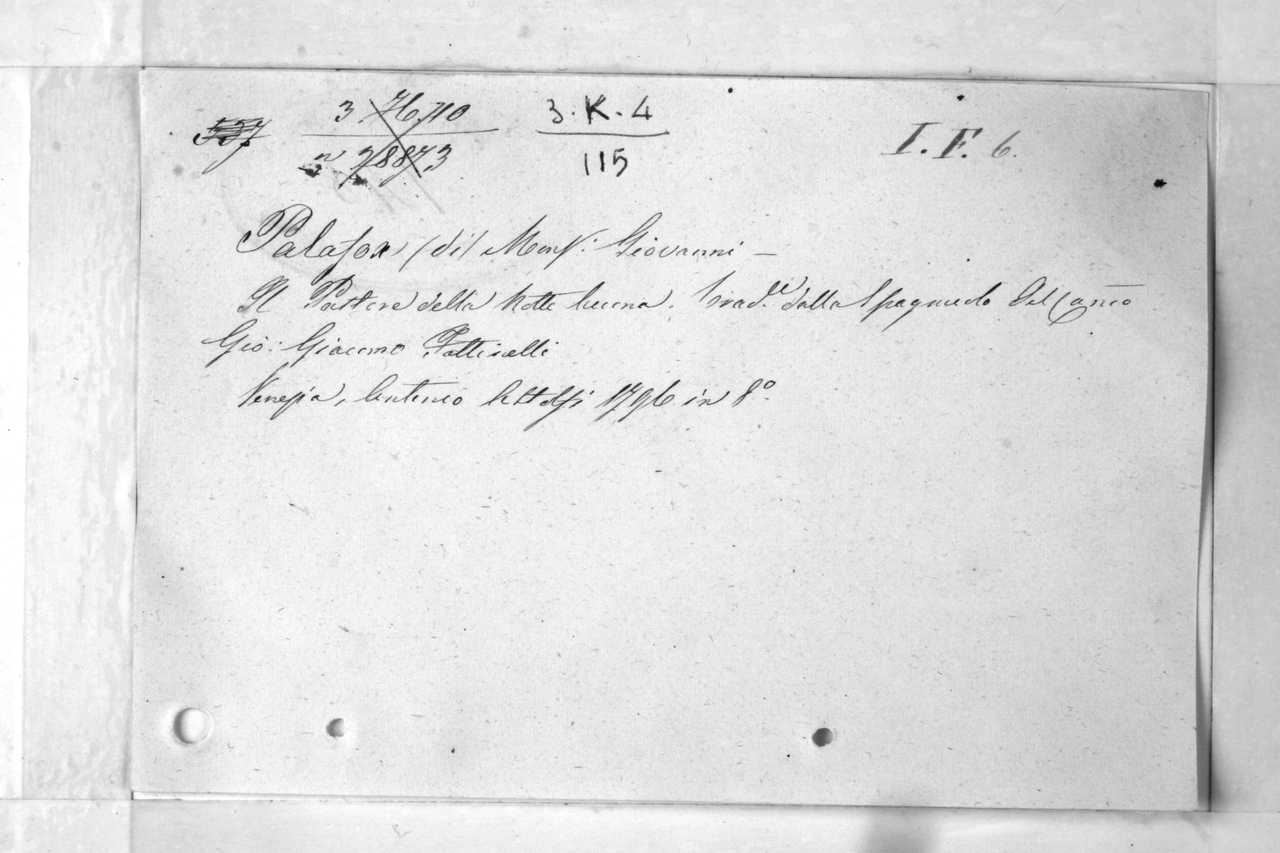 537 3 76,710 3. K. 4 I. F. 6.
n 28873 115
Palafox (di) Monsʳ: Giovanni —
Il Pastore della Notte buona. Tradᵗᵗ dalla Spagnuolo Del Canco
Gio: Giacomo Fatticelli
Venezia, Antonio Astolfi 1796 in 8º.